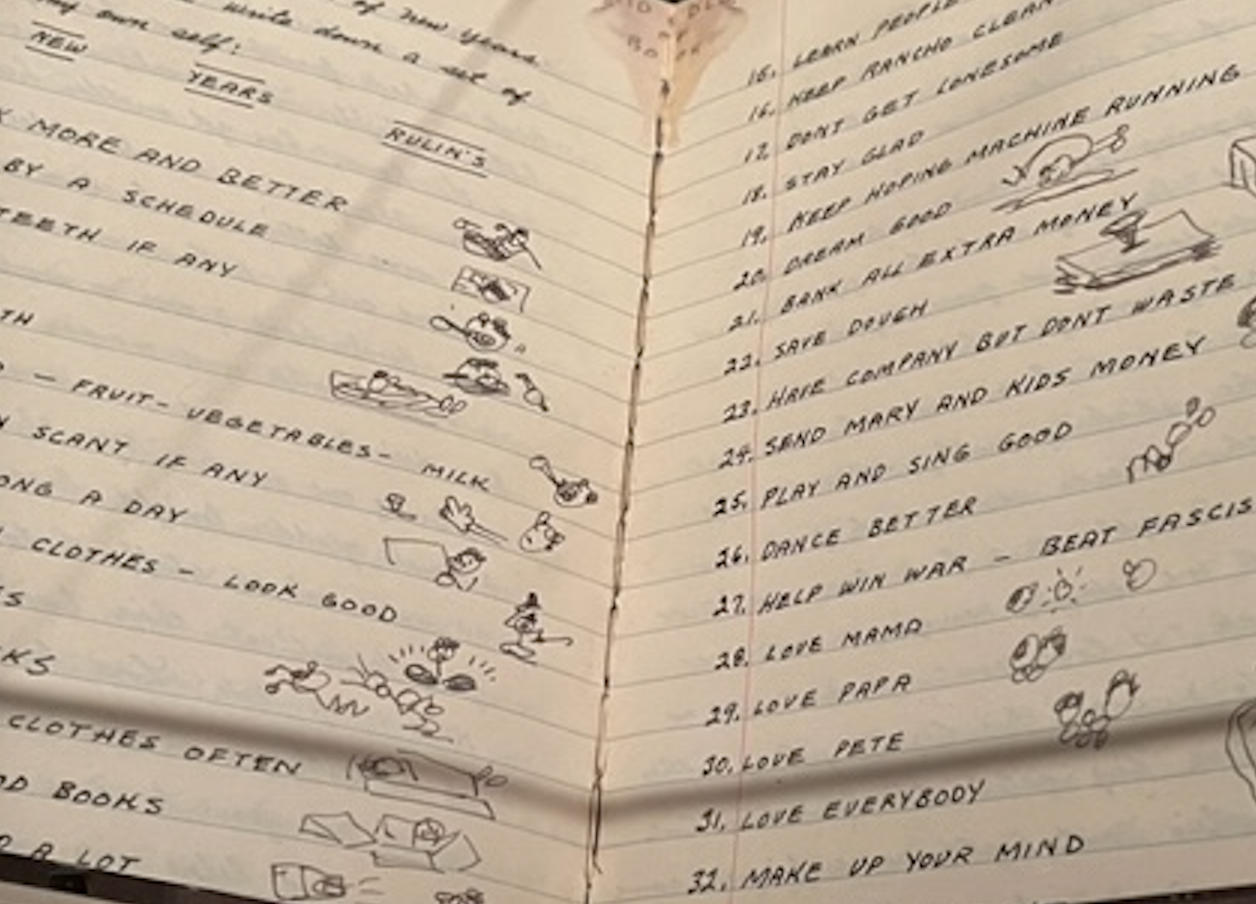 of new years
write down a set of
my own self:
NEW YEARS RULIN'S
MORE AND BETTER
BY A SCHEDULE
TEETH IF ANY
- FRUIT - VEGETABLES - MILK
SCANT IF ANY
A DAY
CLOTHES - LOOK GOOD
CLOTHES OFTEN
BOOKS
A LOT
15. LEARN PEOPLE
16. KEEP RANCHO CLEAN
17. DONT GET LONESOME
18. STAY GLAD
19. KEEP HOPING MACHINE RUNNING
20. DREAM GOOD
21. BANK ALL EXTRA MONEY
22. SAVE DOUGH
23. HAVE COMPANY BUT DONT WASTE
24. SEND MARY AND KIDS MONEY
25. PLAY AND SING GOOD
26. DANCE BETTER
27. HELP WIN WAR - BEAT FASCIS
28. LOVE MAMA
29. LOVE PAPA
30. LOVE PETE
31. LOVE EVERYBODY
32. MAKE UP YOUR MIND